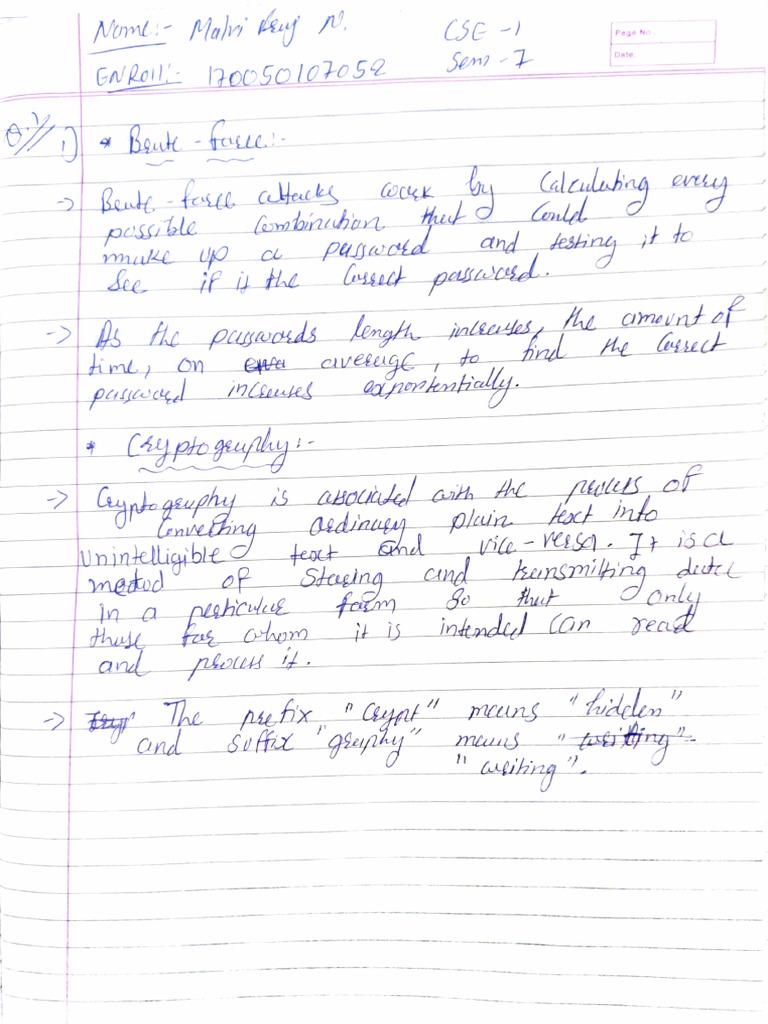 Name:- Malvi Reuj N. CSE - 1
Page No.
ENROll:- 170050107052 Sem - 7
Date:
Q.1 1) * Brute - force:-
-> Brute - force attacks work by Calculating every
possible Combination that Could
make up a password and testing it to
See if it the Correct password.
-> As the passwords length increases, the amount of
time, on average, to find the Correct
password increases exponentially.
* Cryptography:-
-> Cryptography is associated with the process of
Converting ordinary plain text into
Unintelligible text and vice-versa. It is a
metod of Storing and transmitting data
in a perticular form So that only
those for whom it is intended Can read
and process it.
-> The prefix "Crypt" means "hidden"
and suffix "graphy" means "writing".
"writing".